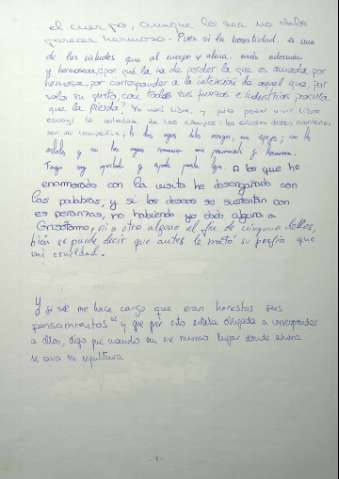 el cuerpo, aunque lo sea no debe
parecer hermoso. Pues si la honestidad es una
de las virtudes que al cuerpo y alma más adornan
y hermosean, ¿por qué la ha de perder la que es amada por
hermosa, por corresponder a la intención de aquel que, por
solo su gusto, con todas sus fuerzas e industrias procura
que la pierda? Yo nací libre, y para poder vivir libre
escogí la soledad de los campos: los árboles destas montañas
son mi compañía;
Tengo
a los que he
enamorado con la vista he desengañado con
las palabras, y si los deseos se sustentan con
esperanzas, no habiendo yo dado alguna a
Grisóstomo, ni a otro alguno el fin de ninguno dellos,
bien se puede decir que antes le mató su porfía que
mi crueldad.
Y si se me hace cargo que eran honestos sus
pensamientos y que por esto estaba obligada a corresponder
a ellos, digo que cuando en ese mismo lugar donde ahora
se cava su sepultura